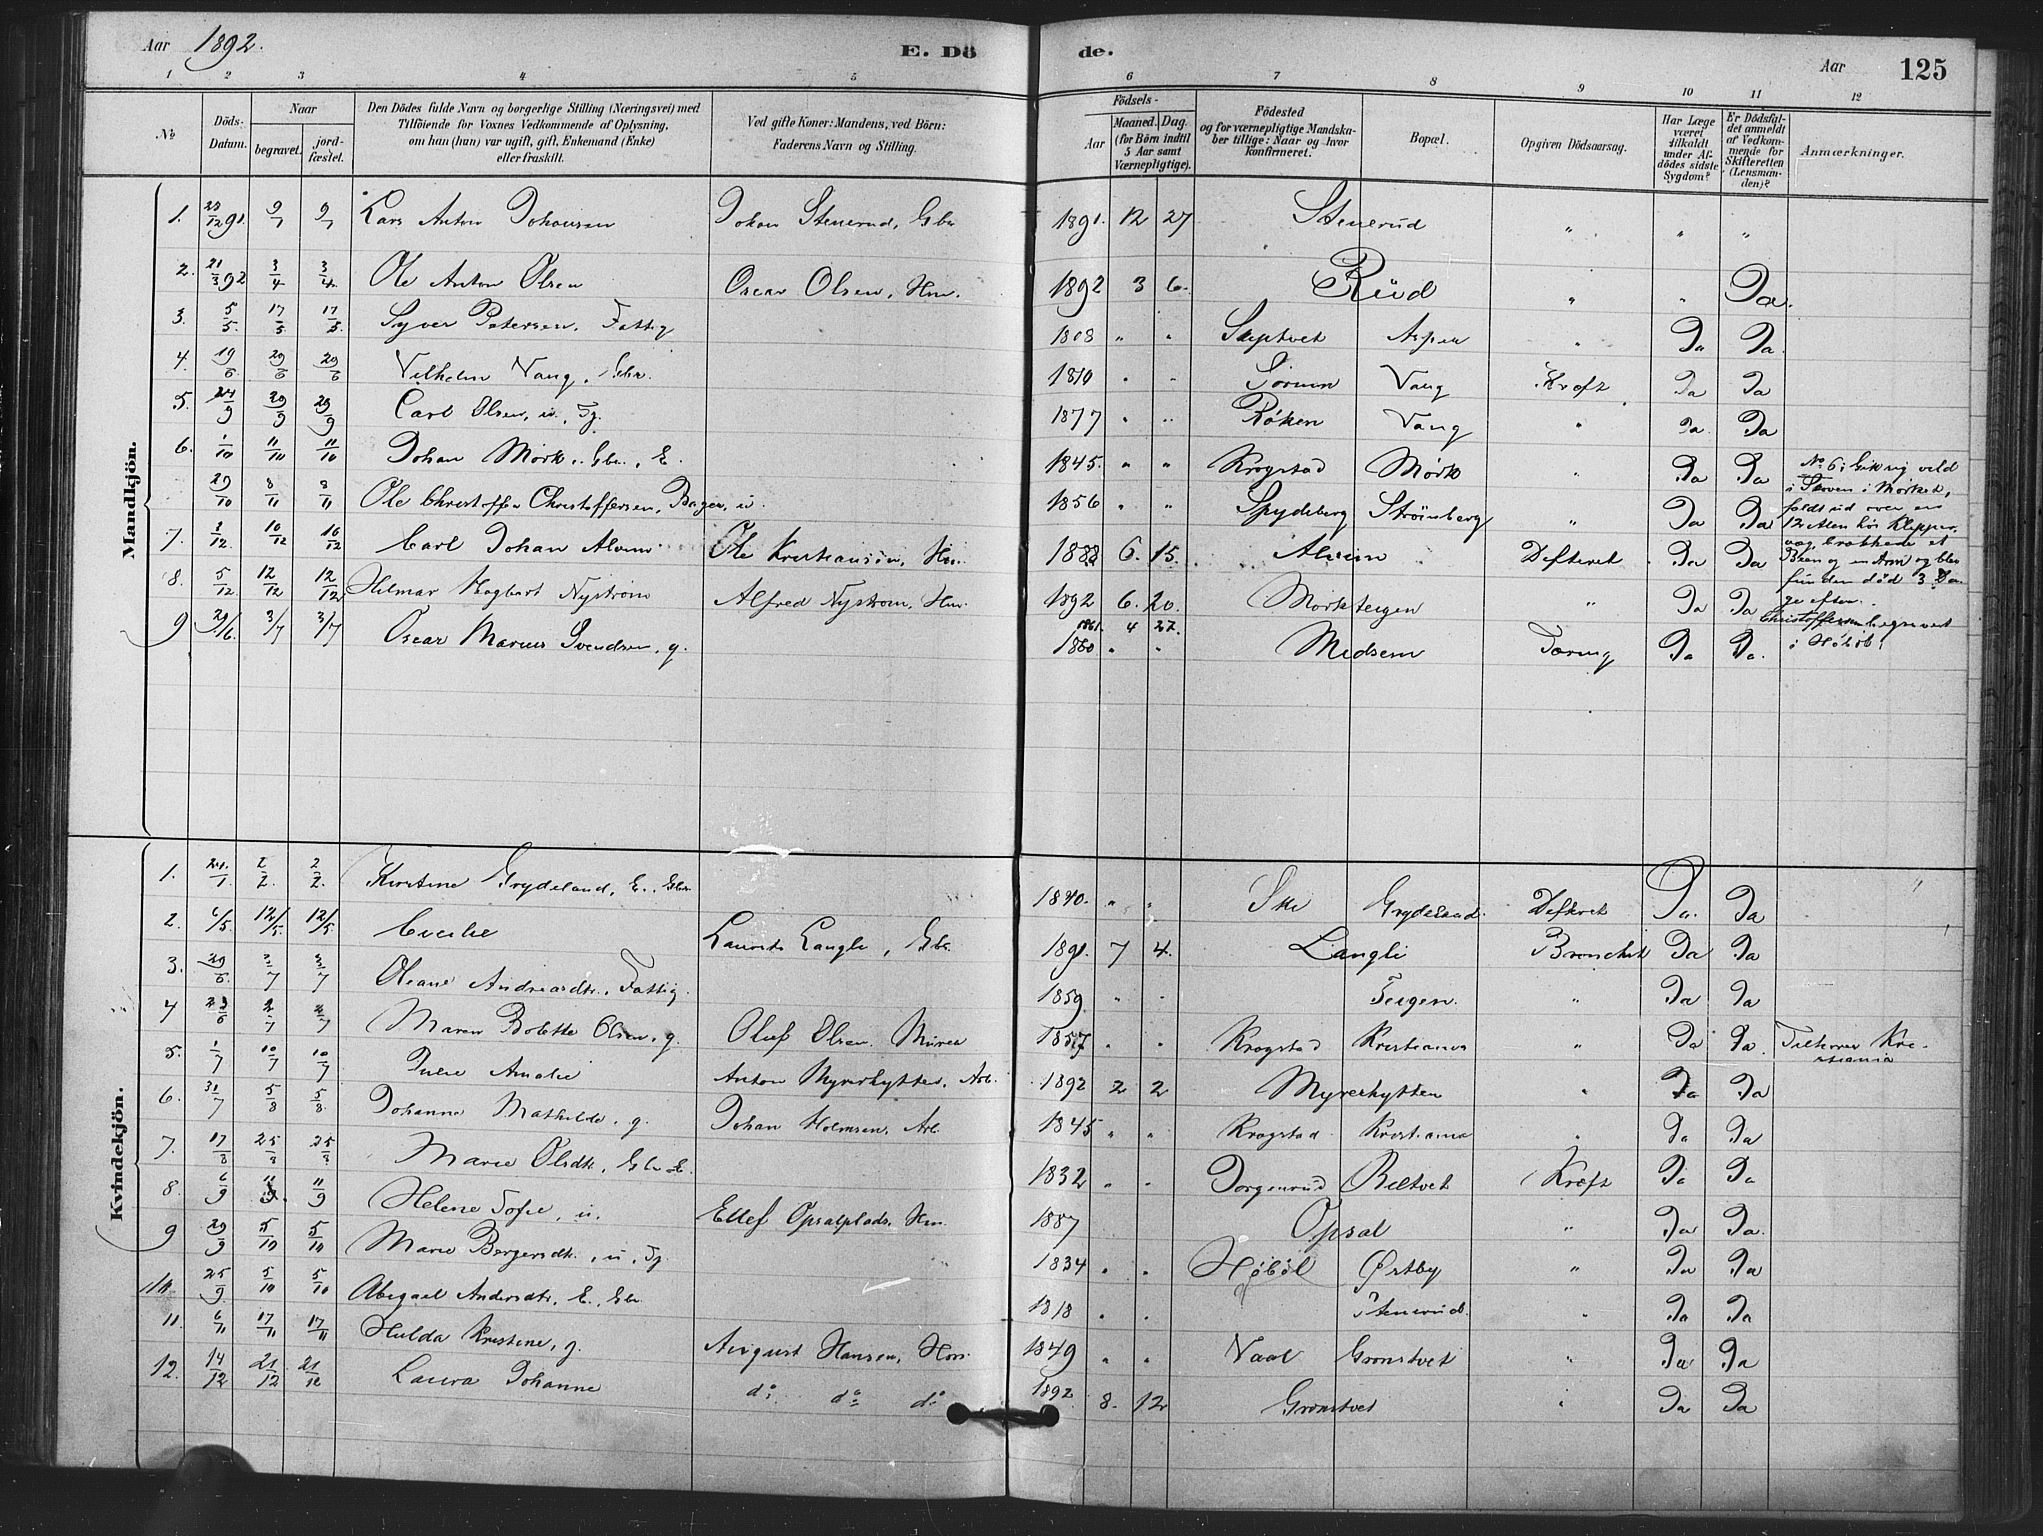 Aar 1892. E. Dö de. Aar 125
1 2 3 4 5 6 7 8 9 10 11 12
No Döds-Datum. Naar begravet. jordfæstet. Den Dödes fulde Navn og borgerlige Stilling (Næringsvei) med Tilföiende for Voxnes Vedkommende af Oplysning, om han (hun) var ugift, gift, Enkemand (Enke) eller fraskilt. Ved gifte Koner: Mandens, ved Börn: Faderens Navn og Stilling. Födsels- Aar Maaned. Dag. (for Börn indtil 5 Aar samt Værnepligtige). Födested og for værnepligtige Mandskaber tillige: Naar og hvor konfirmeret. Bopæl. Opgiven Dödsaarsag. Har Læge været tilkaldt under Afdödes sidste Sygdom? Er Dödsfaldet anmeldt af Vedkommende for Skifteretten (Lensmanden)? Anmærkninger.
Mandkjön.
1. 28/12 91. 9/1 9/1 Lars Anton Johansen Johan Stenerud, Gbr 1891. 12 27 Stenerud " " "
2. 21/3 92 3/4 3/4 Ole Anton Olsen Oscar Olsen, Hm. 1892 3 6. Rüd " " Ja.
3. 5/5. 17/5 17/5. Syver Petersen, Fattig 1808 " " Skiptvet Aspen " Ja Ja.
4. 19/6 29/6 29/6 Vilhelm Vang, Gbr. 1810 " " Sørum Vang Kræft Ja Ja
5. 24/9 29/9 29/9 Carl Olsen, u. Tj. 1877 " " Røken Vang " Ja. Ja
6. 1/10 11/10 11/10 Johan Mørk, Gbr., E. 1845. " " Krogstad Mørk " Ja Ja No 6: Gik sig vild
29/10 8/11 8/11 Ole Christoffer Christoffersen, Bager, u. 1856 " " Spydeberg Strømberg " Ja Ja i Skoven i Mørket,
7. 3/12. 10/12 10/12 Carl Johan Alvim Ole Kristiansen, Hm. 1888 6. 15. Alvim Difterit Ja Ja faldt ud over en
12 Alen høi Klippe,
8. 5/12. 12/12 12/12 Hilmar Hagbart Nystrøm Alfred Nystrøm, Hm. 1892 6. 20. Mørkteigen " Ja Ja og brækkede et
Been og en Arm og blev
funden død 3 Da-
ge efter.
9 29/6 3/7 3/7 Oscar Marius Svendsen, g. 1861. 4 27. 1860 " " Midsem Tæring Ja Ja. Christoffersen begravet
i Høböl.
Kvindekjön.
1. 24/1. 2/2. 2/2. Kirstine Grydeland, E., Gbr. 1840. " " Ski Grydeland. Difterit Ja. Ja
2. 6/5. 12/5. 12/5 Cecilie Laurits Langli, Gbr. 1891. 7 4. Langli Bronchit Ja Ja
3. 29/6. 3/7 3/7 Oleane Andreasdtr., Fattig. 1859 " " Teigen. " Ja Ja
4 23/6 2/7 2/7 Maren Bolette Olsen, g. Oluf Olsen. Murer 1857 " " Krogstad Kristiania " Ja Ja. Tilhører Kri-
stiania
5. 1/7 10/7 10/7 Julie Amalie Anton Myrerhytten, Arb. 1892 2 2 Myrerhytten " Ja Ja
6. 31/7 5/8 5/8. Johanne Mathilde, g. Johan Holmsen, Arb. 1845 " " Krogstad Kristiania " Ja Ja
7. 17/8 25/8 25/8 Marie Olsdtr., Gbr E. 1832 " " Dorgenrud Biltvet Kræft Ja Ja
8. 6/9 11/9. 11/9 Helene Sofie, u. Ellef Opsalplads. Hm. 1887 Opsal " Ja Ja.
9 29/9 5/10 5/10 Marie Bergersdtr., u., Tj. 1834 " " Høböl Østby " Ja Ja
10. 25/9. 5/10 5/10 Abigael Andersdtr., E., Gbr. 1818 " . Stenerud. " Ja Ja
11. 6/11 17/11 17/11 Hulda Kristine, g. August Hansen, Hm. 1849 " " Vaal Grønstvet " Ja Ja
12. 14/12 21/12 21/12 Laura Johanne do. do do 1892. 8. 12 Grønstvet " Ja Ja